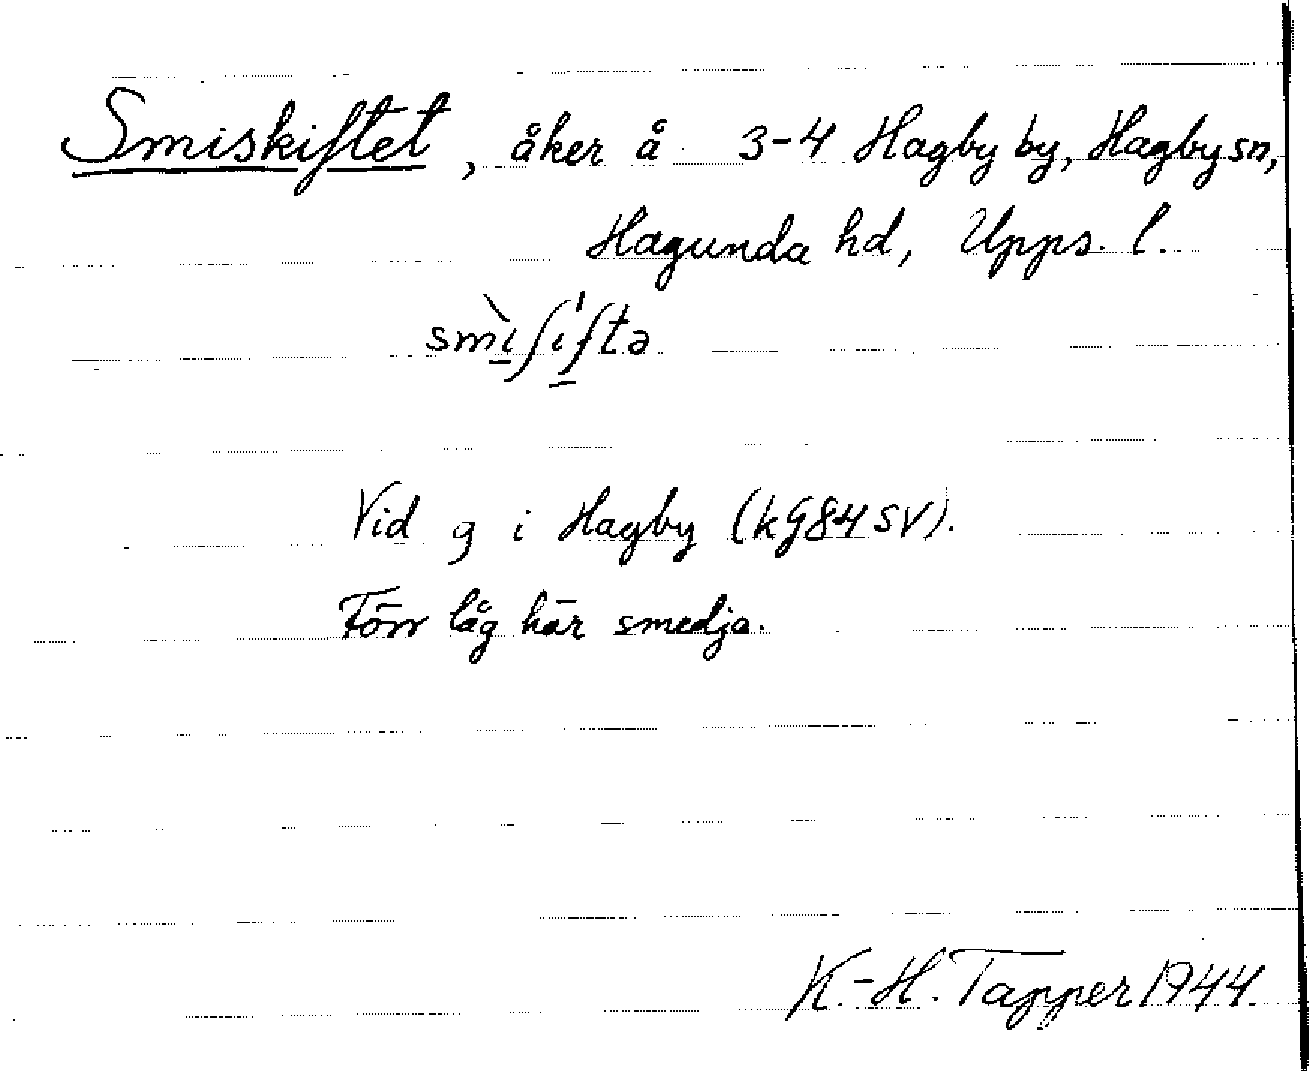 Smiskiftet, åker å 3-4 Hagby by, Hagby sn,
Hagunda hd, Upps. l.
smìʃìftə
Vid g i Hagby (kG84SV).
Förr låg här smedja.
K.-H. Tapper 1944.